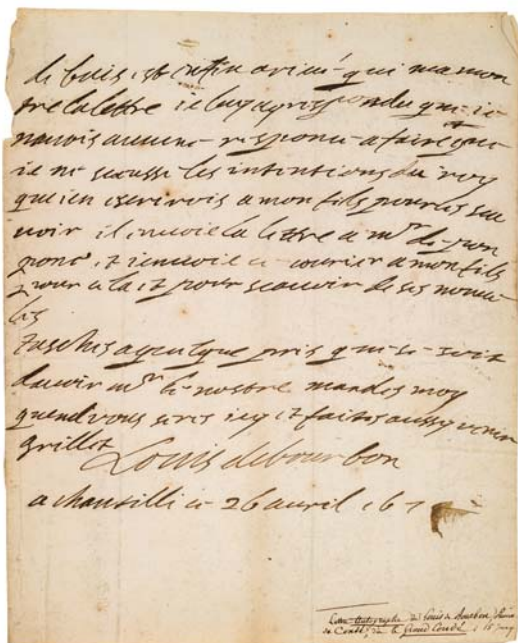 de bois est enfin arivé qui ma mon
tre la lettre ie luy ay respondu que ie
navois aucune responce a faire que
ie ne sceusse les intentions du roy
que ien escrirois a mon fils pour les sca
voir il envoie la lettre a mr de pom
pone et ienvoie ce courier a mon fils
pour cela et pour scavoir de ses nouve
les
taschés a quelque pris que ce soit
davoir mr le nostre mandés moy
quend vous serés icy et faites aussy venir
grillet
Louis de bourbon
a chantilli ce 26 avril 167
Lettre autographe de Louis de Bourbon, Prince
de Condé, dit le Grand Condé